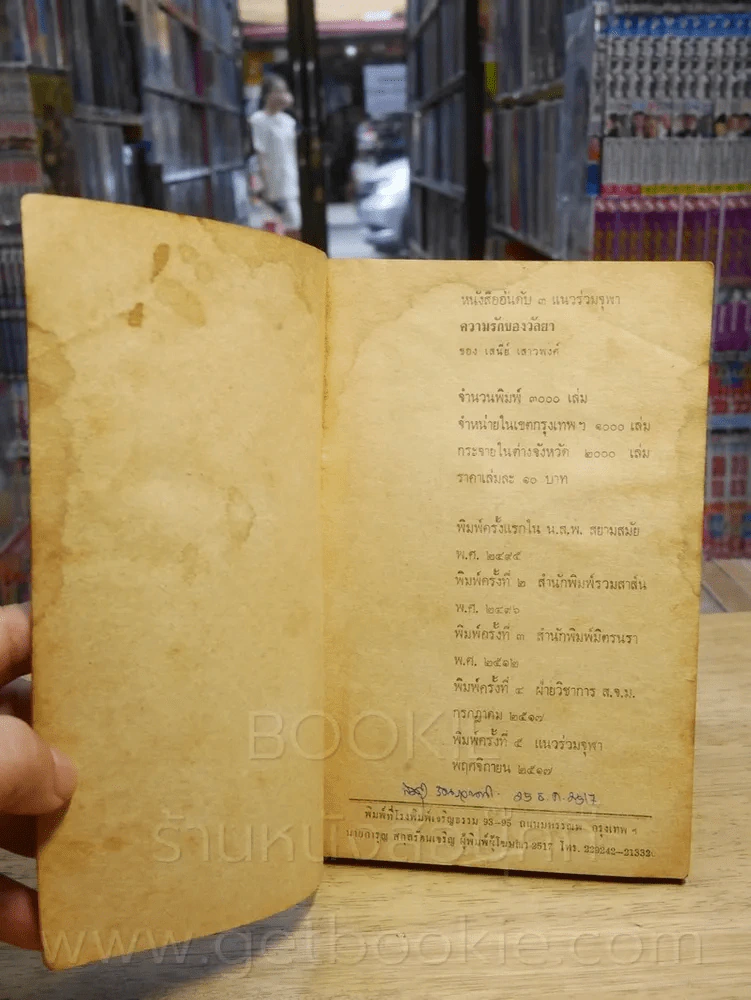 หนังสืออันดับ ๓ แนวร่วมจุฬา
ความรักของวัลยา
ของ เสนีย์ เสาวพงศ์
จำนวนพิมพ์ ๓๐๐๐ เล่ม
จำหน่ายในเขตกรุงเทพฯ ๑๐๐๐ เล่ม
กระจายในต่างจังหวัด ๒๐๐๐ เล่ม
ราคาเล่มละ ๑๐ บาท
พิมพ์ครั้งแรกใน น.ส.พ. สยามสมัย
พ.ศ. ๒๔๙๕
พิมพ์ครั้งที่ ๒ สำนักพิมพ์รวมสาส์น
พ.ศ. ๒๔๙๖
พิมพ์ครั้งที่ ๓ สำนักพิมพ์มิตรนรา
พ.ศ. ๒๕๑๒
พิมพ์ครั้งที่ ๔ ฝ่ายวิชาการ ส.จ.ม.
กรกฎาคม ๒๕๑๗
พิมพ์ครั้งที่ ๕ แนวร่วมจุฬา
พฤศจิกายน ๒๕๑๗
๒๕ ธ.ค. 2517
พิมพ์ที่โรงพิมพ์เจริญธรรม 93-95 ถนน กรุงเทพฯ
ผู้พิมพ์ผู้โฆษณา 2517 โทร.
BOOKIE
ร้านหนังสือบุ๊กกี้
www.getbookie.com